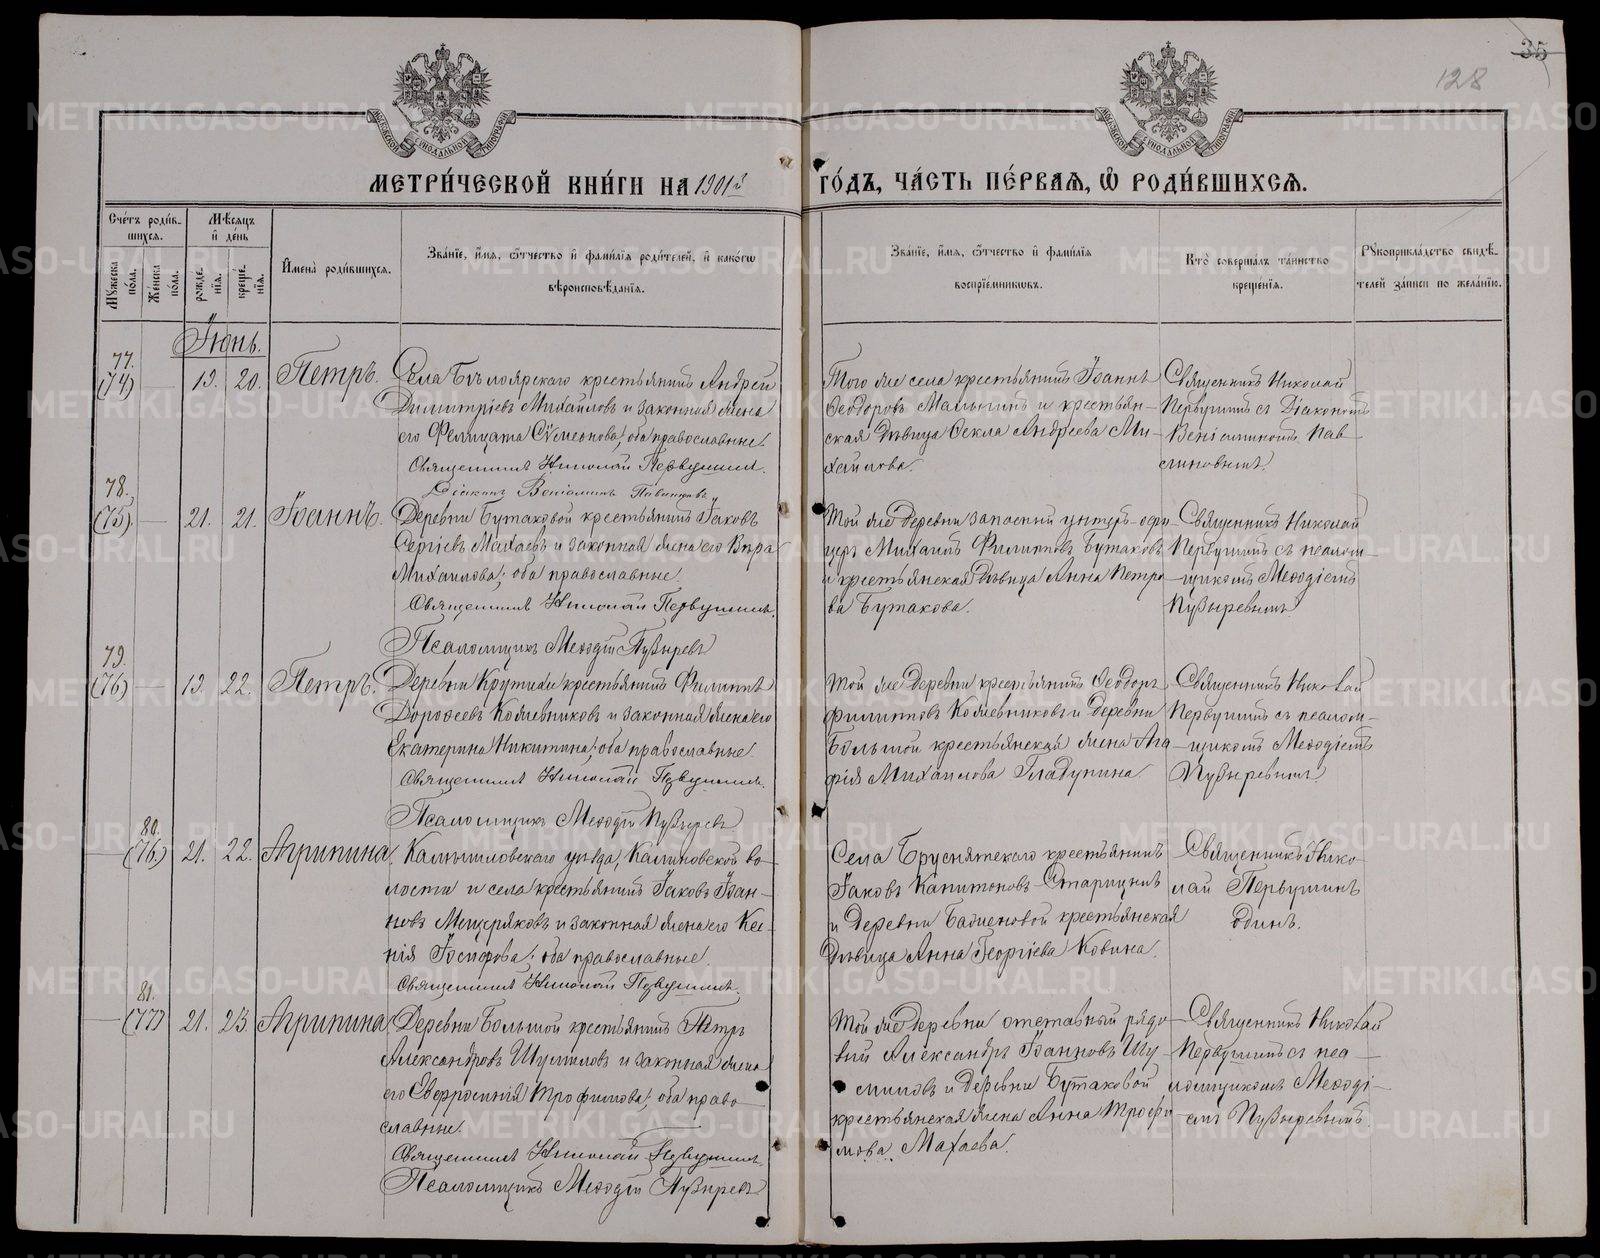 35
128
МОСКОВСКОЙ СѴНОДАЛЬНОЙ ТИПОГРАФІИ
МОСКОВСКОЙ СѴНОДАЛЬНОЙ ТИПОГРАФІИ
МЕТРИ́ЧЕСКОЙ КНИ́ГИ НА 1901й ГО́ДЪ, ЧА́СТЬ ПЕ́РВАѦ, Ѡ РОДИ́ВШИХСѦ.
Сче́тъ роди́в-
шихсѧ.
Мꙋжеска по́ла.
Же́нска по́ла.
Мѣ́сѧцъ
и҆ де́нь
рожде́нїѧ.
креще́нїѧ.
И҆мена̀ роди́вшихсѧ.
Зва́нїе, и҆́мѧ, ѻ҆́тчество и҆ фами́лїѧ роди́телей, и҆ како́гѡ
вѣроисповѣ́данїѧ.
Зва́нїе, и҆́мѧ, ѻ҆́тчество и҆ фами́лїѧ
воспрїе́мникѡвъ.
Кто̀ соверша́лъ та́инство
креще́нїѧ.
Рꙋкоприкла́дство свидѣ́-
телей за́писи по жела́нїю.
Іюнь.
77.
(74) — 19. 20. Петръ.
Села Бѣлоярскаго крестьянинъ Андрей
Димитріевъ Михайловъ и законная жена
его Фелицата Сѵмеонова; оба православные.
Священникъ Николай Первушинъ.
Діаконъ Веніаминъ Павлиновъ
Того же села крестьянинъ Іоаннъ
Ѳеодоровъ Малыгинъ и крестьян-
ская дѣвица Ѳекла Андреева Ми-
хайлова.
Священникъ Николай
Первушинъ съ Діакономъ
Веніаминомъ Пав-
линовымъ.
78.
(75) — 21. 21. Іоаннъ.
Деревни Бутаковой крестьянинъ Іаковъ
Сергіевъ Махаевъ и законная жена его Вѣра
Михаилова; оба православные.
Священникъ Николай Первушинъ.
Псаломщикъ Меѳодій Пузыревъ
Той же деревни запасный унтеръ-офи-
церъ Михаилъ Филипповъ Бутаковъ
и крестьянская дѣвица Анна Петро-
ва Бутакова.
Священникъ Николай
Первушинъ съ псалом-
щикомъ Меѳодіемъ
Пузыревымъ
79.
(76) — 19. 22. Петръ.
Деревни Крутихи крестьянинъ Филиппъ
Дороѳеевъ Кожевниковъ и законная жена его
Екатерина Никитина; оба православные.
Священникъ Николай Первушинъ.
Псаломщикъ Меѳодій Пузыревъ
Той же деревни крестьянинъ Ѳеодоръ
Филипповъ Кожевниковъ и деревни
Большой крестьянская жена Ага-
фія Михаилова Гладунина.
Священникъ Николай
Первушинъ съ псалом-
щикомъ Меѳодіемъ
Пузыревымъ.
80.
— (76.) 21. 22. Агрипина
Камышловскаго уѣзда, Калиновской во-
лости и села крестьянинъ Іаковъ Іоан-
новъ Мещеряковъ и законная жена его Ксе-
нія Іосифова; оба православные.
Священникъ Николай Первушинъ.
Села Бруснятскаго крестьянинъ
Іаковъ Капитоновъ Старицынъ
и деревни Баженовой крестьянская
дѣвица Анна Георгіева Ковина.
Священникъ Нико-
лай Первушинъ
одинъ.
81.
— (77) 21. 23. Агрипина
Деревни Большой крестьянинъ Петръ
Александровъ Шумиловъ и законная жена
его Евфросинія Трофимова; оба право-
славные.
Священникъ Николай Первушинъ.
Псаломщикъ Меѳодій Пузыревъ
Той же деревни отставный рядо-
вый Александръ Іоанновъ Шу-
миловъ и деревни Бутаковой
крестьянская жена Анна Трофи-
мова Махаева.
Священникъ Николай
Первушинъ съ пса-
ломщикомъ Меѳоді-
емъ Пузыревымъ.
METRIKI.GASO-URAL.RU